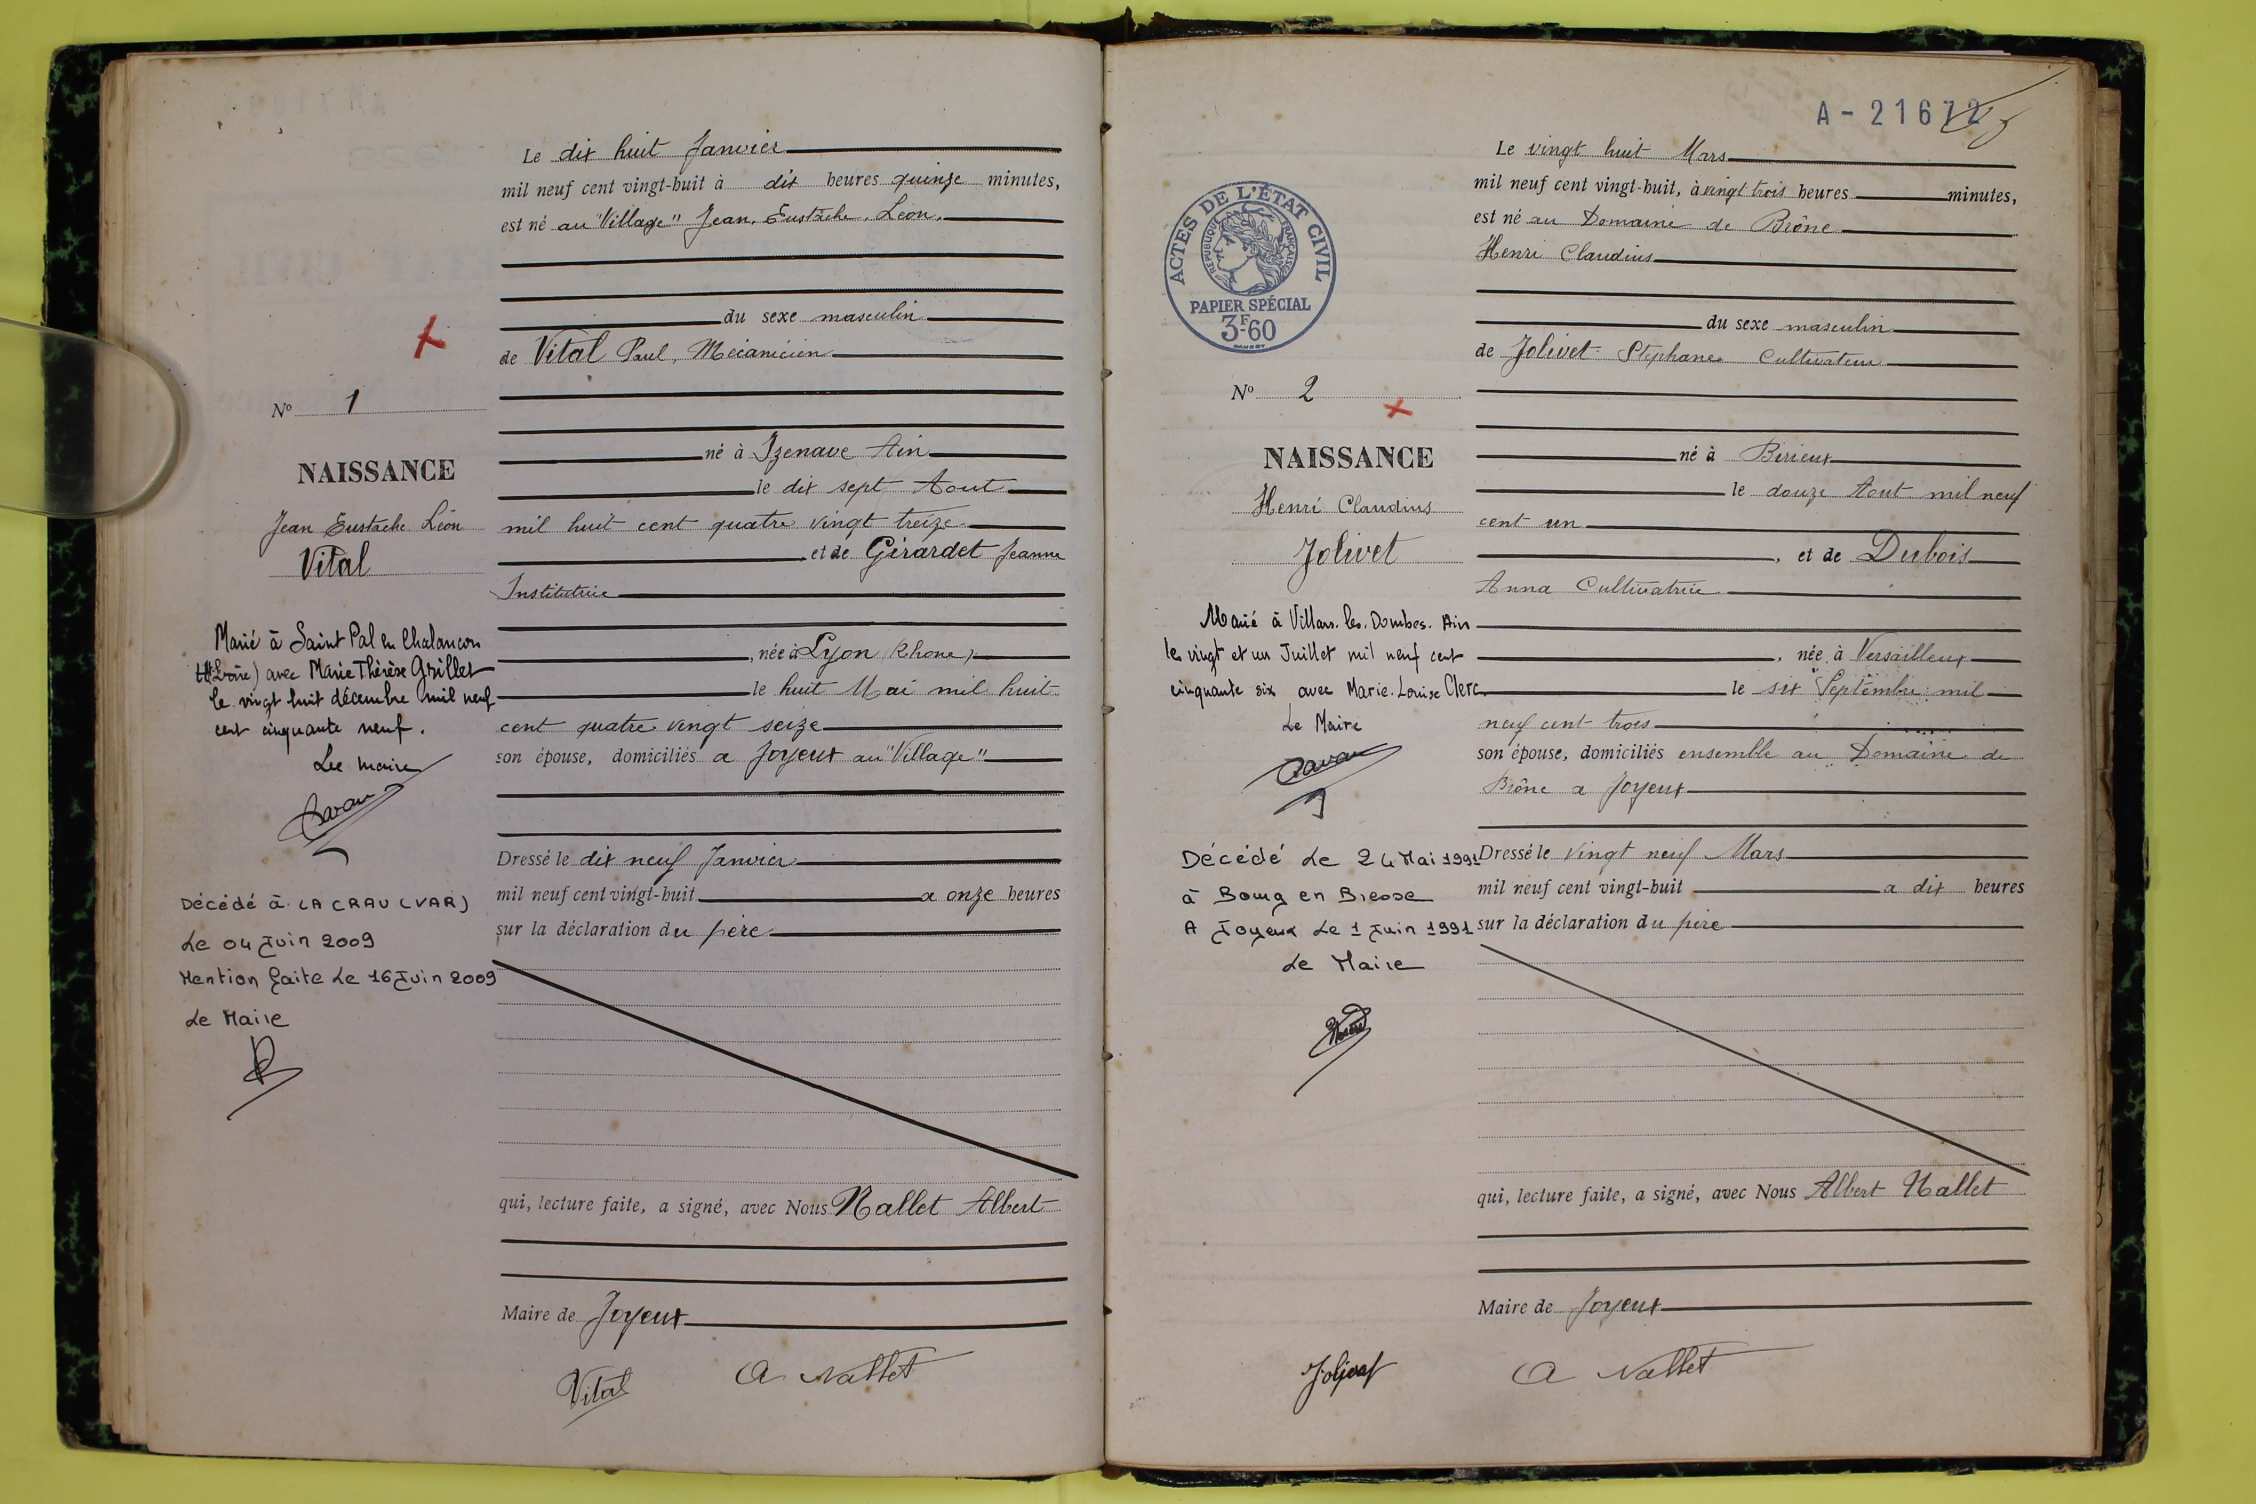 Le dix huit Janvier
mil neuf cent vingt-huit à dix heures quinze minutes,
est né au "Village" Jean, Eustache, Léon,
du sexe masculin
de Vital Paul, Mécanicien
N° 1
né à Izenave Ain
NAISSANCE
le dix sept Aout
Jean Eustache Léon
mil huit cent quatre vingt treize
Vital
et de Girardet Jeanne
Institutrice
Marié à Saint Pal en Chalancon
(Hte Loire) avec Marie Thérèse Grillet
le vingt huit décembre mil neuf
cent cinquante neuf.
Le maire
née à Lyon (Rhone)
le huit Mai mil huit
cent quatre vingt seize
son épouse, domiciliés a Joyeux au "Village"
Dressé le dix neuf Janvier
mil neuf cent vingt-huit a onze heures
sur la déclaration du père
Décédé à LA CRAU (VAR)
Le 04 Juin 2009
Mention faite Le 16 Juin 2009
Le Maire
qui, lecture faite, a signé, avec Nous Nallet Albert
Maire de Joyeux
Vital A Nallet
A-21672
Le vingt huit Mars
mil neuf cent vingt-huit, à vingt trois heures minutes,
est né au Domaine de Brône
Henri Claudius
ACTES DE L'ÉTAT CIVIL
RÉPUBLIQUE FRANÇAISE
PAPIER SPÉCIAL
3F60
du sexe masculin
de Jolivet Stéphane Cultivateur
N° 2
né à Birieux
NAISSANCE
le douze Aout mil neuf
Henri Claudius
cent un
Jolivet
et de Dubois
Anna Cultivatrice
Marié à Villars. les. Dombes. Ain
le vingt et un Juillet mil neuf cent
cinquante six avec Marie. Louise Clerc.
Le Maire
née à Versailleux
le six Septembre mil
neuf cent trois
son épouse, domiciliés ensemble au Domaine de
Brône a Joyeux
Dressé le vingt neuf Mars
mil neuf cent vingt-huit a dix heures
sur la déclaration du père
Décédé Le 24 Mai 1991
à Bourg en Bresse
A Joyeux Le 1 Juin 1991
Le Maire
qui, lecture faite, a signé, avec Nous Albert Nallet
Maire de Joyeux
Jolivet A Nallet